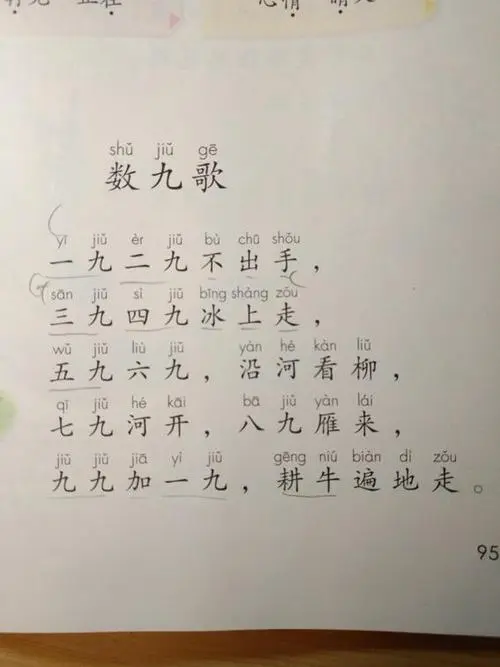 shǔ jiǔ gē
数九歌
yī jiǔ èr jiǔ bù chū shǒu
一九二九不出手，
sān jiǔ sì jiǔ bīng shàng zǒu
三九四九冰上走，
wǔ jiǔ liù jiǔ yán hé kàn liǔ
五九六九，沿河看柳，
qī jiǔ hé kāi bā jiǔ yàn lái
七九河开，八九雁来，
jiǔ jiǔ jiā yī jiǔ gēng niú biàn dì zǒu
九九加一九，耕牛遍地走。
95